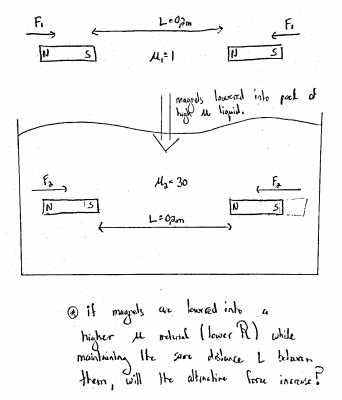 F₁ L=0,2m F₁
N S μ₁=1 N S
magnets lowered into pool of
high μ liquid.
F₂ μ₂=30 F₂
N S N S
L=0,2m
* if magnets are lowered into a
higher μ material (lower R) while
maintaining the same distance L between
them, will the attractive force increase?